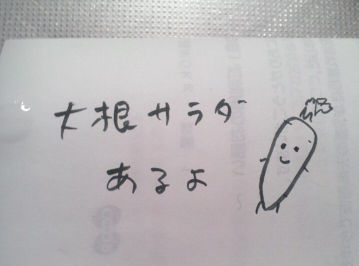 大根サラダ
あるよ